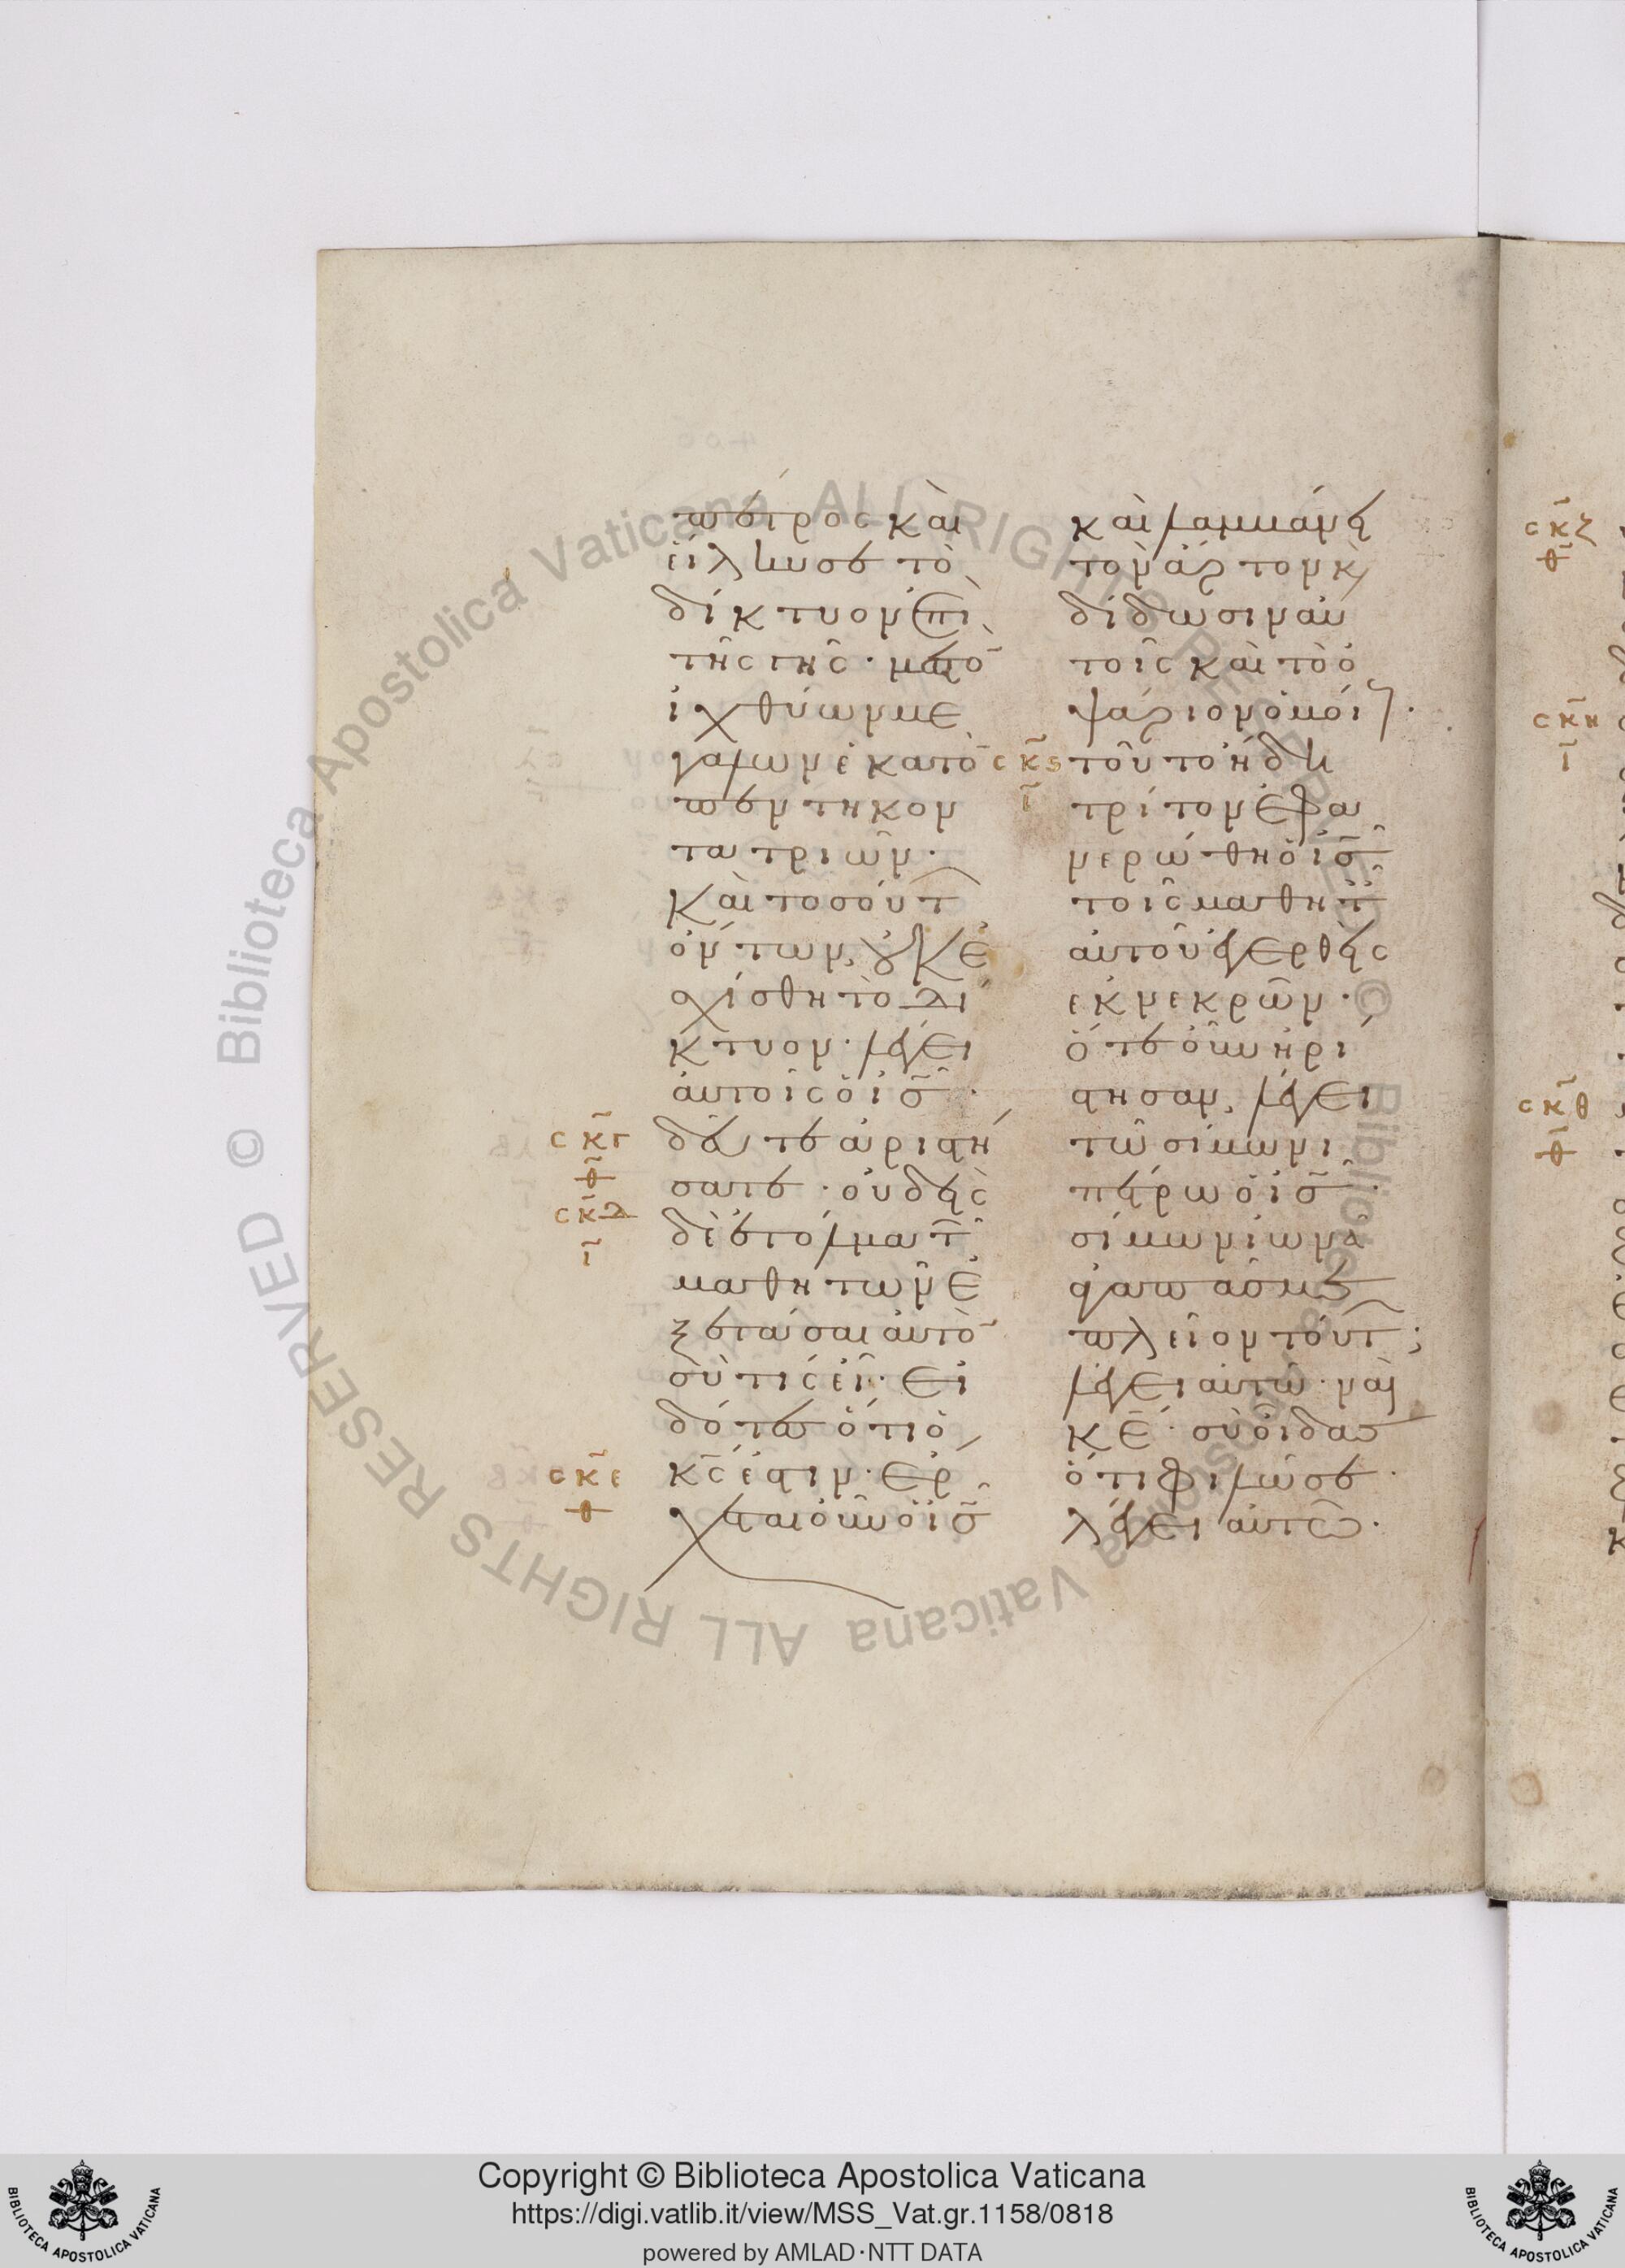 πέτρος καὶ
εἵλκυσε τὸ
δίκτυον ἐπὶ
τῆς γῆς· μεστὸ̄
ἰχθύων με
γάλων ἑκατὸ̄
πεντηκον
τατριῶν·
Καὶ τοσούτ
ὄντων, οὐκ ἐ
σχίσθη τὸ δί
κτυον· λέγει
αὐτοῖς ὁ ις̄·
σκγ
δεῦτε ἀριστή
σατε· οὐδεὶς
σκδ
ι
δὲ ἐτόλμα τ
μαθητῶν ἐ
ξετάσαι αὐτὸ̄
σὺ τίς εἶ· εἰ
δότες ὅτι ὁ
σκε
κς̄ ἐστιν· ἔρ
χεται οὖν ὁ ις̄
καὶ λαμβάνει
τὸν ἄρτον κ̀
δίδωσιν αὐ
τοῖς καὶ τὸ ὀ
ψάριον ὁμοί·
σκς
ι
τοῦτο ἤδη
τρίτον ἐφα
νερώθη ὁ ις̄
τοῖς μαθητ
αὐτοῦ ἐγερθεὶς
ἐκ νεκρῶν·
ὅτε οὖν ἠρί
στησαν, λέγει
τῶ σίμωνι
πέτρω ὁ ις̄·
σίμων ἰωνᾶ
ἀγαπᾶς με
πλεῖον τούτ;
λέγει αὐτῶ· ναὶ
κε̄· σὺ οἶδας
ὅτι φιλῶ σε·
λέγει αὐτῶ·
σκζ
σκη
ι
σκθ
Copyright © Biblioteca Apostolica Vaticana
https://digi.vatlib.it/view/MSS_Vat.gr.1158/0818
powered by AMLAD·NTT DATA
BIBLIOTECA APOSTOLICA VATICANA
BIBLIOTECA APOSTOLICA VATICANA
© Biblioteca Apostolica Vaticana ALL RIGHTS RESERVED
© Biblioteca Apostolica Vaticana ALL RIGHTS RESERVED